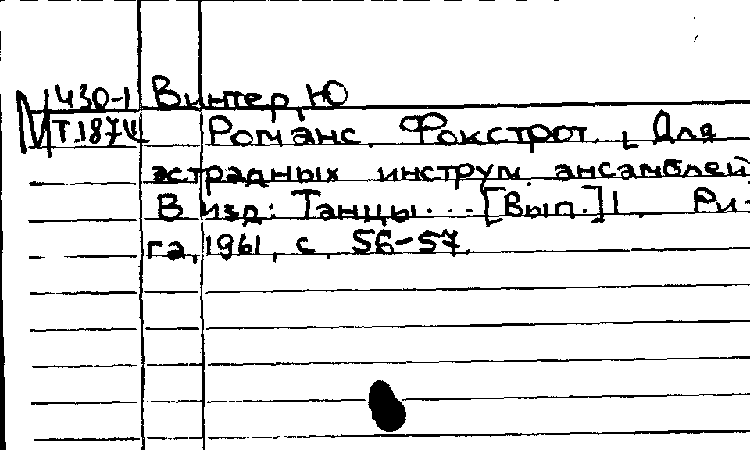 М430-1 Винтер, Ю
Т.187 Романс. Фокстрот. Для
эстрадных инструм. ансамблей
В изд: Танцы... [Вып.] 1. Ри-
га, 1961, с. 56-57.